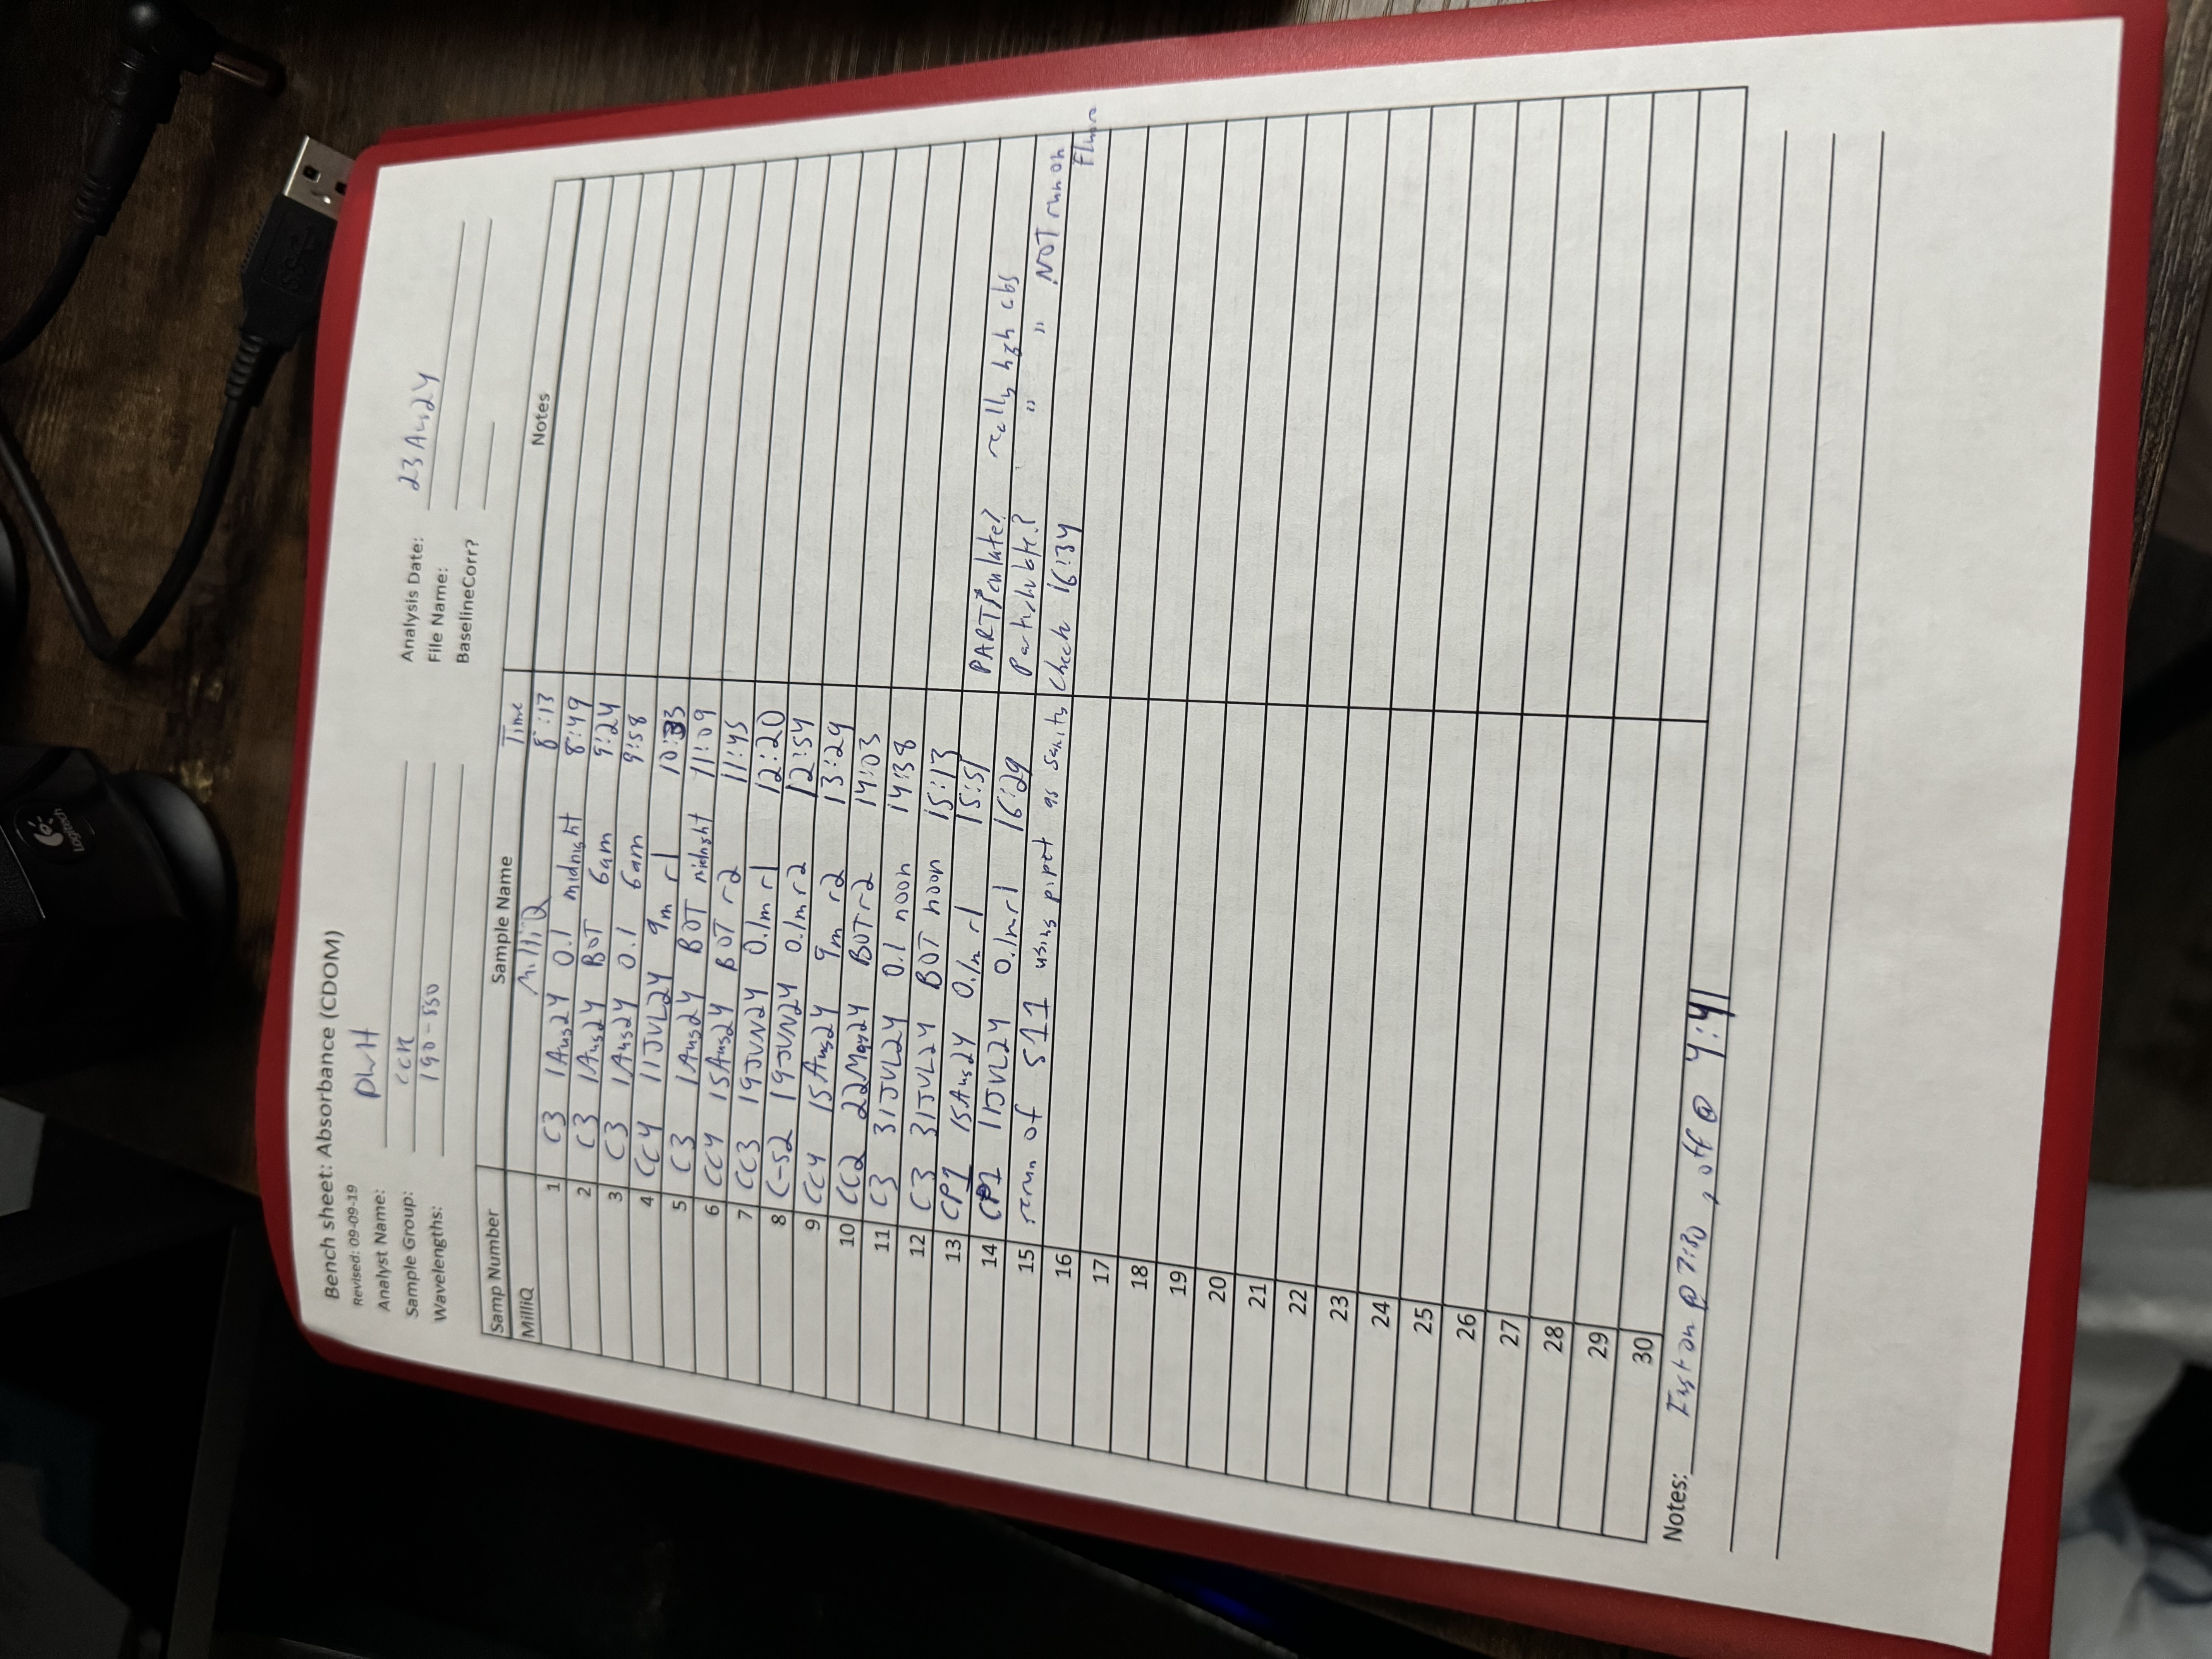 Logitech
Bench sheet: Absorbance (CDOM)
Revised: 09-09-19
Analyst Name: DWH
Sample Group: CCR
Wavelengths: 190-850
Analysis Date: 23Aug24
File Name:
BaselineCorr?
Samp Number Sample Name Time Notes
MilliQ MilliQ 8:13
1 C3 1Aug24 0.1 midnight 8:49
2 C3 1Aug24 BOT 6am 9:24
3 C3 1Aug24 0.1 6am 9:58
4 CC4 11JUL24 9m r1 10:33
5 C3 1Aug24 BOT midnight 11:09
6 CC4 15Aug24 BOT r2 11:45
7 CC3 19JUN24 0.1m r1 12:20
8 C-S2 19JUN24 0.1m r2 12:54
9 CC4 15Aug24 9m r2 13:29
10 CC2 22May24 BOT r2 14:03
11 C3 31JUL24 0.1 noon 14:38
12 C3 31JUL24 BOT noon 15:13
13 CP1 15Aug24 0.1m r1 15:51 PARTiculate? really high abs
14 CP1 11JUL24 0.1m r1 16:29 Particulate? " " NOT run on Fluoro
15 rerun of S11 using pipet as sanity check 16:34
16
17
18
19
20
21
22
23
24
25
26
27
28
29
30
Notes: Inst on @ 7:30, off @ 4:41